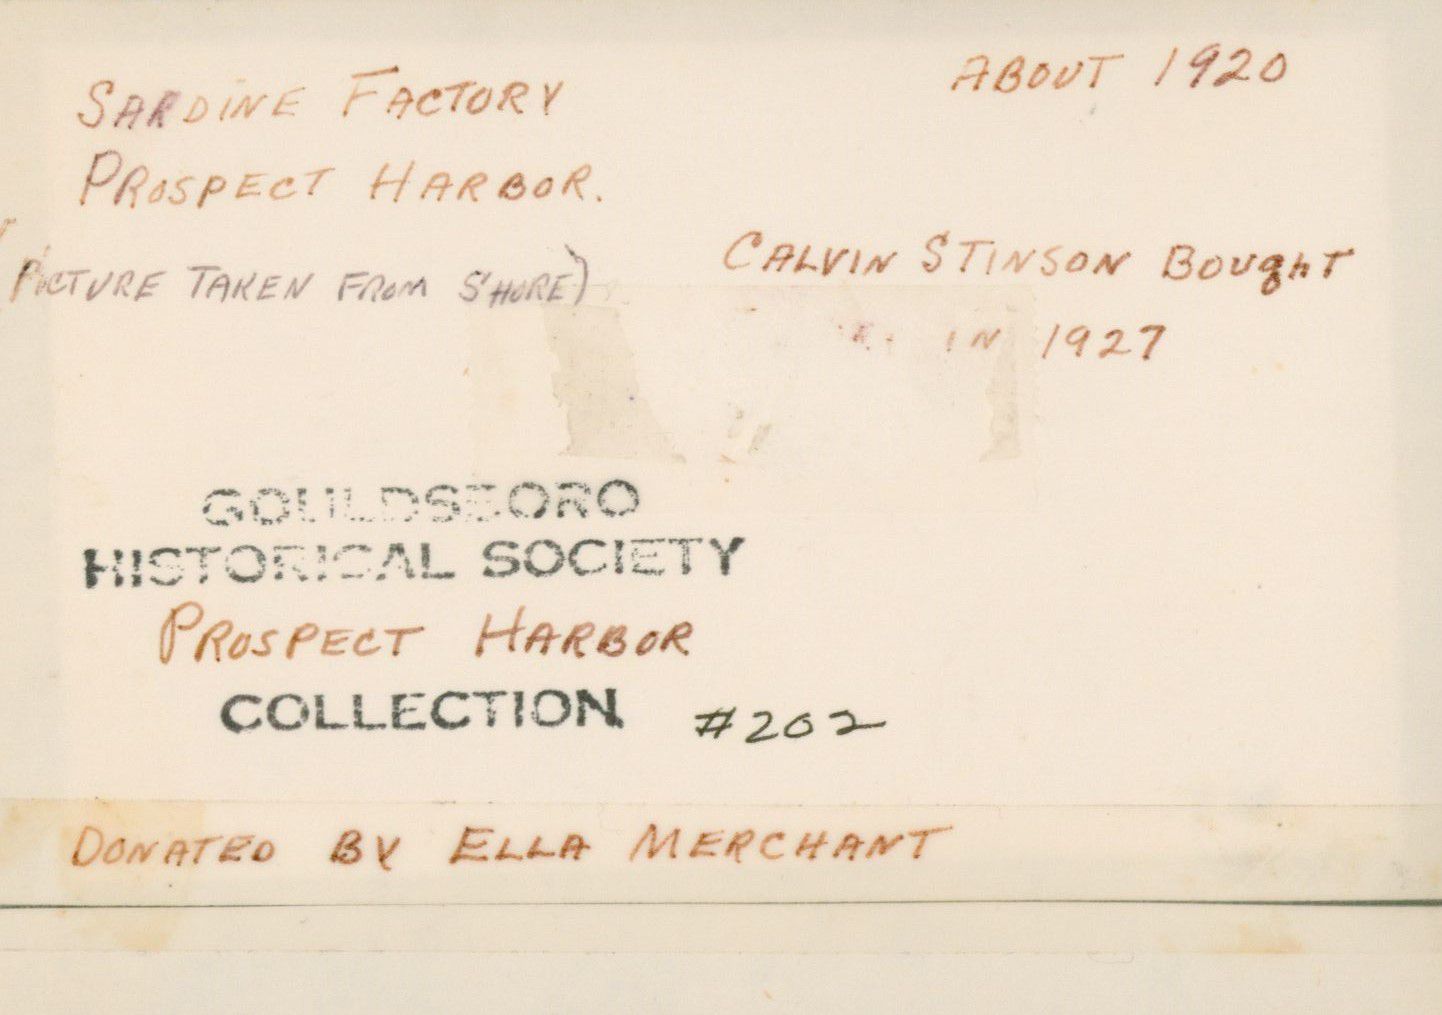 SARDINE FACTORY
ABOUT 1920
PROSPECT HARBOR.
(PICTURE TAKEN FROM SHORE)
CALVIN STINSON BOUGHT
IN 1927
GOULDSBORO
HISTORICAL SOCIETY
PROSPECT HARBOR
COLLECTION #202
DONATED BY ELLA MERCHANT